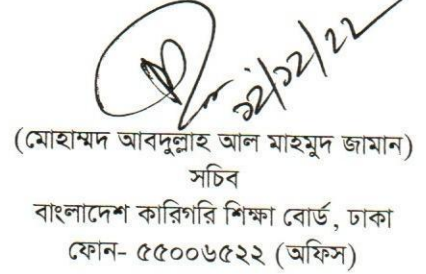 ১২/১২/২২
(মোহাম্মদ আবদুল্লাহ আল মাহমুদ জামান)
সচিব
বাংলাদেশ কারিগরি শিক্ষা বোর্ড, ঢাকা
ফোন- ৫৫০০৬৫২২ (অফিস)